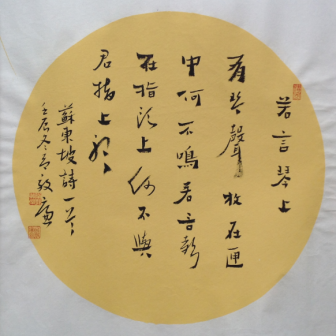 若言琴上
有琴聲放在匣
中何不鳴若言聲
在指頭上何不與
君指上聽
蘇東坡詩一首
壬辰冬